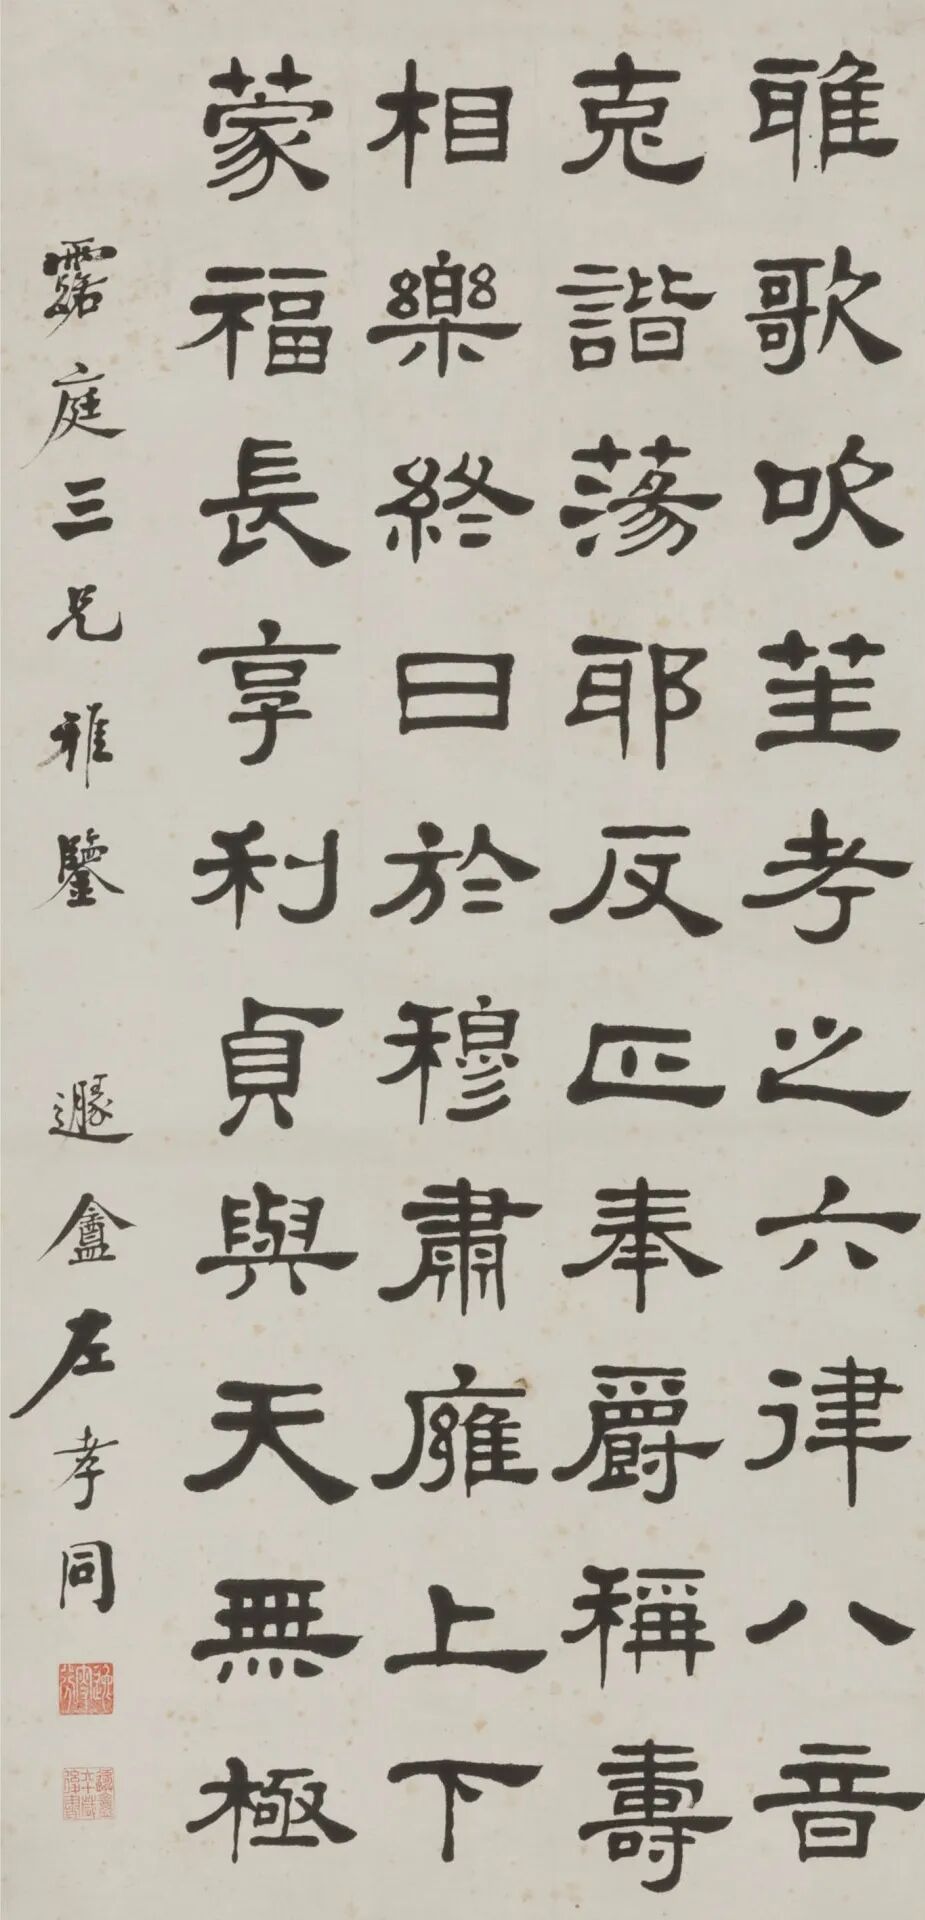 雅歌吹笙考之六律八音
克諧蕩耶反正奉爵稱壽
相樂終日於穆肅雍上下
蒙福長享利貞與天無極
露庭三兄雅鑒　遯盦左孝同